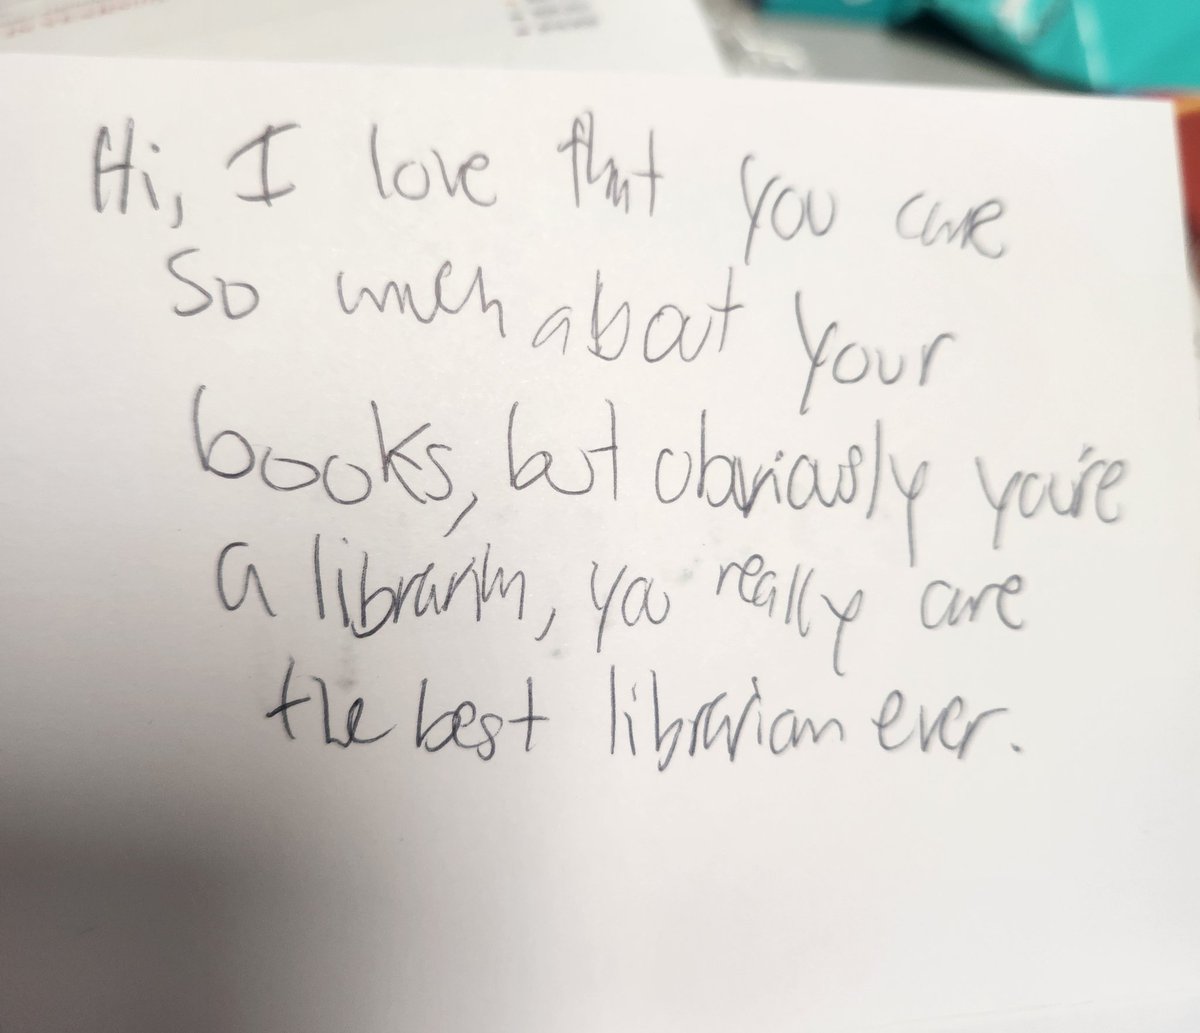 Hi, I love that you care
so much about your
books, but obviously you're
a librarian, you really are
the best librarian ever.